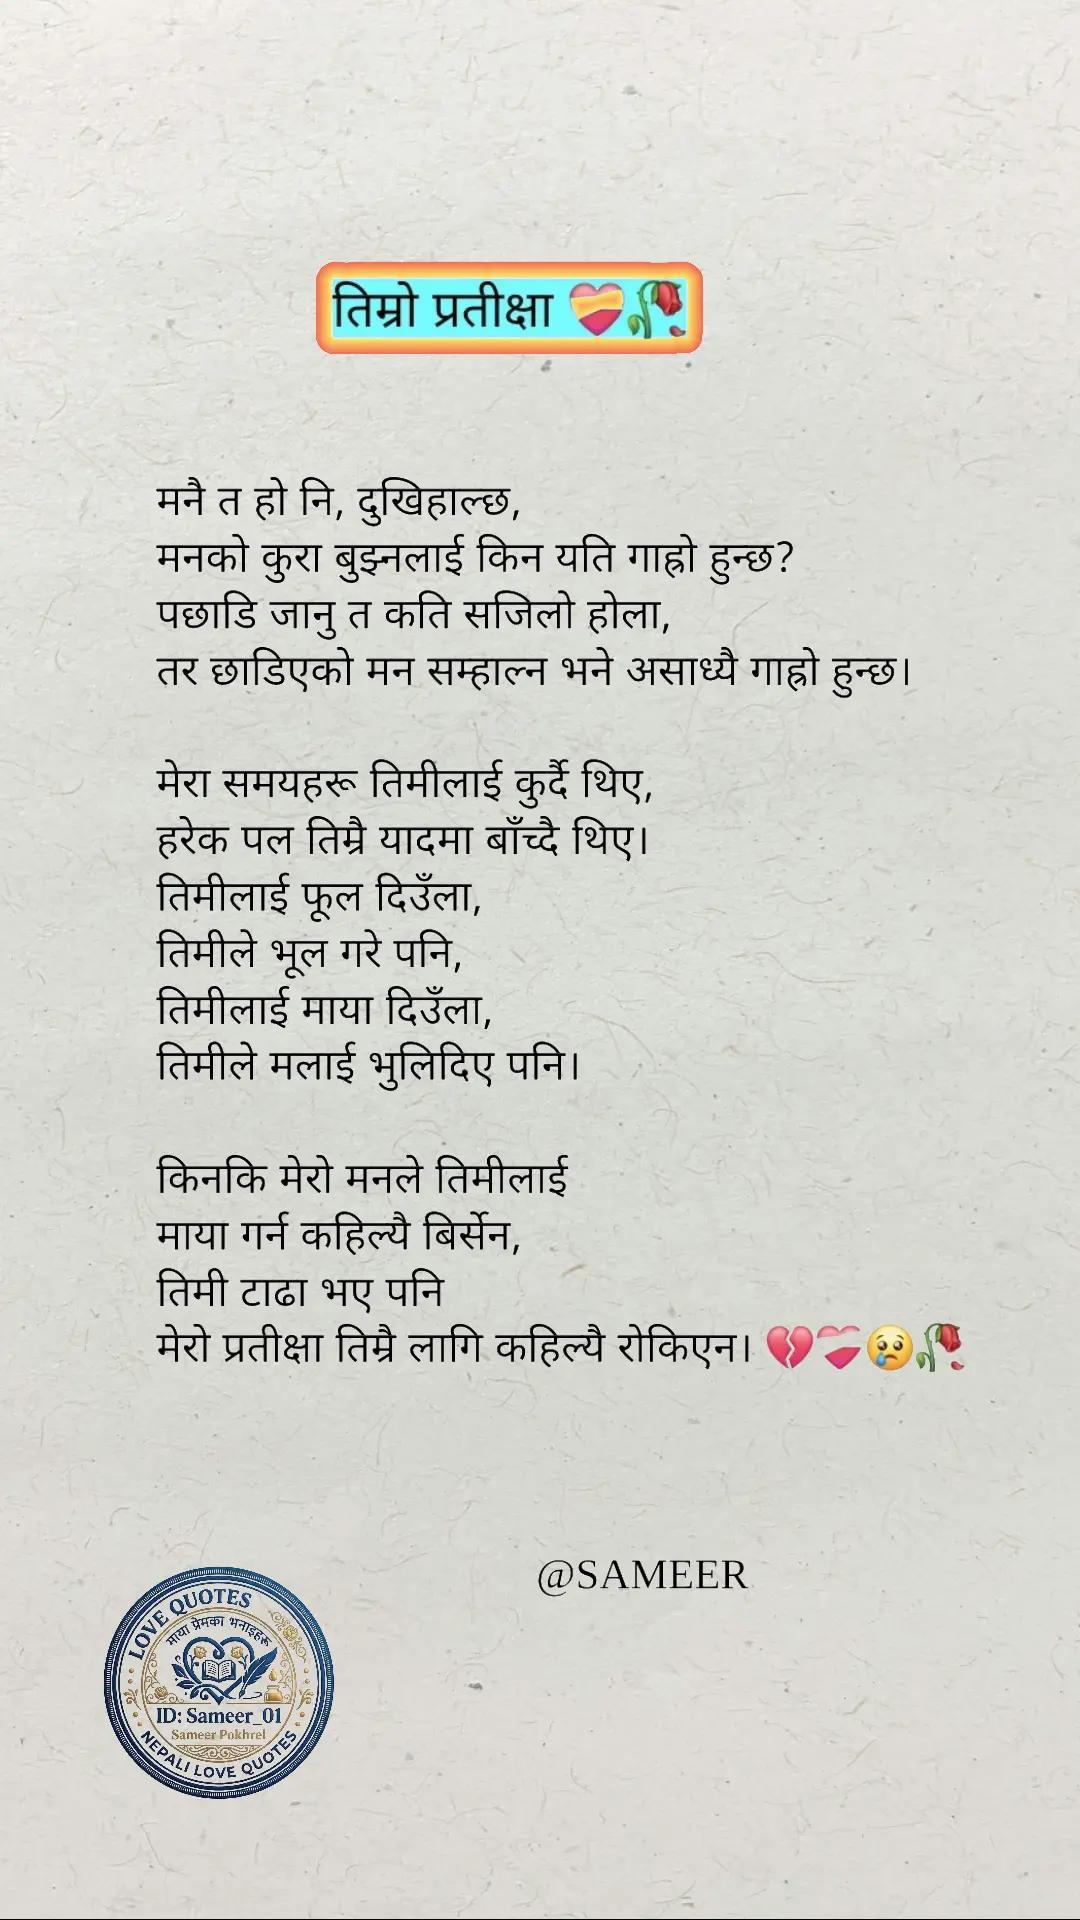 तिम्रो प्रतीक्षा ❤️‍🩹🥀
मनै त हो नि, दुखिहाल्छ,
मनको कुरा बुझ्नलाई किन यति गाह्रो हुन्छ?
पछाडि जानु त कति सजिलो होला,
तर छाडिएको मन सम्हाल्न भने असाध्यै गाह्रो हुन्छ।
मेरा समयहरू तिमीलाई कुर्दै थिए,
हरेक पल तिम्रै यादमा बाँच्दै थिए।
तिमीलाई फूल दिउँला,
तिमीले भूल गरे पनि,
तिमीलाई माया दिउँला,
तिमीले मलाई भुलिदिए पनि।
किनकि मेरो मनले तिमीलाई
माया गर्न कहिल्यै बिर्सेन,
तिमी टाढा भए पनि
मेरो प्रतीक्षा तिम्रै लागि कहिल्यै रोकिएन। 💔❤️‍🩹😢🥀
@SAMEER
LOVE QUOTES
माया प्रेमका भनाइहरू
ID: Sameer_01
Sameer Pokhrel
NEPALI LOVE QUOTES